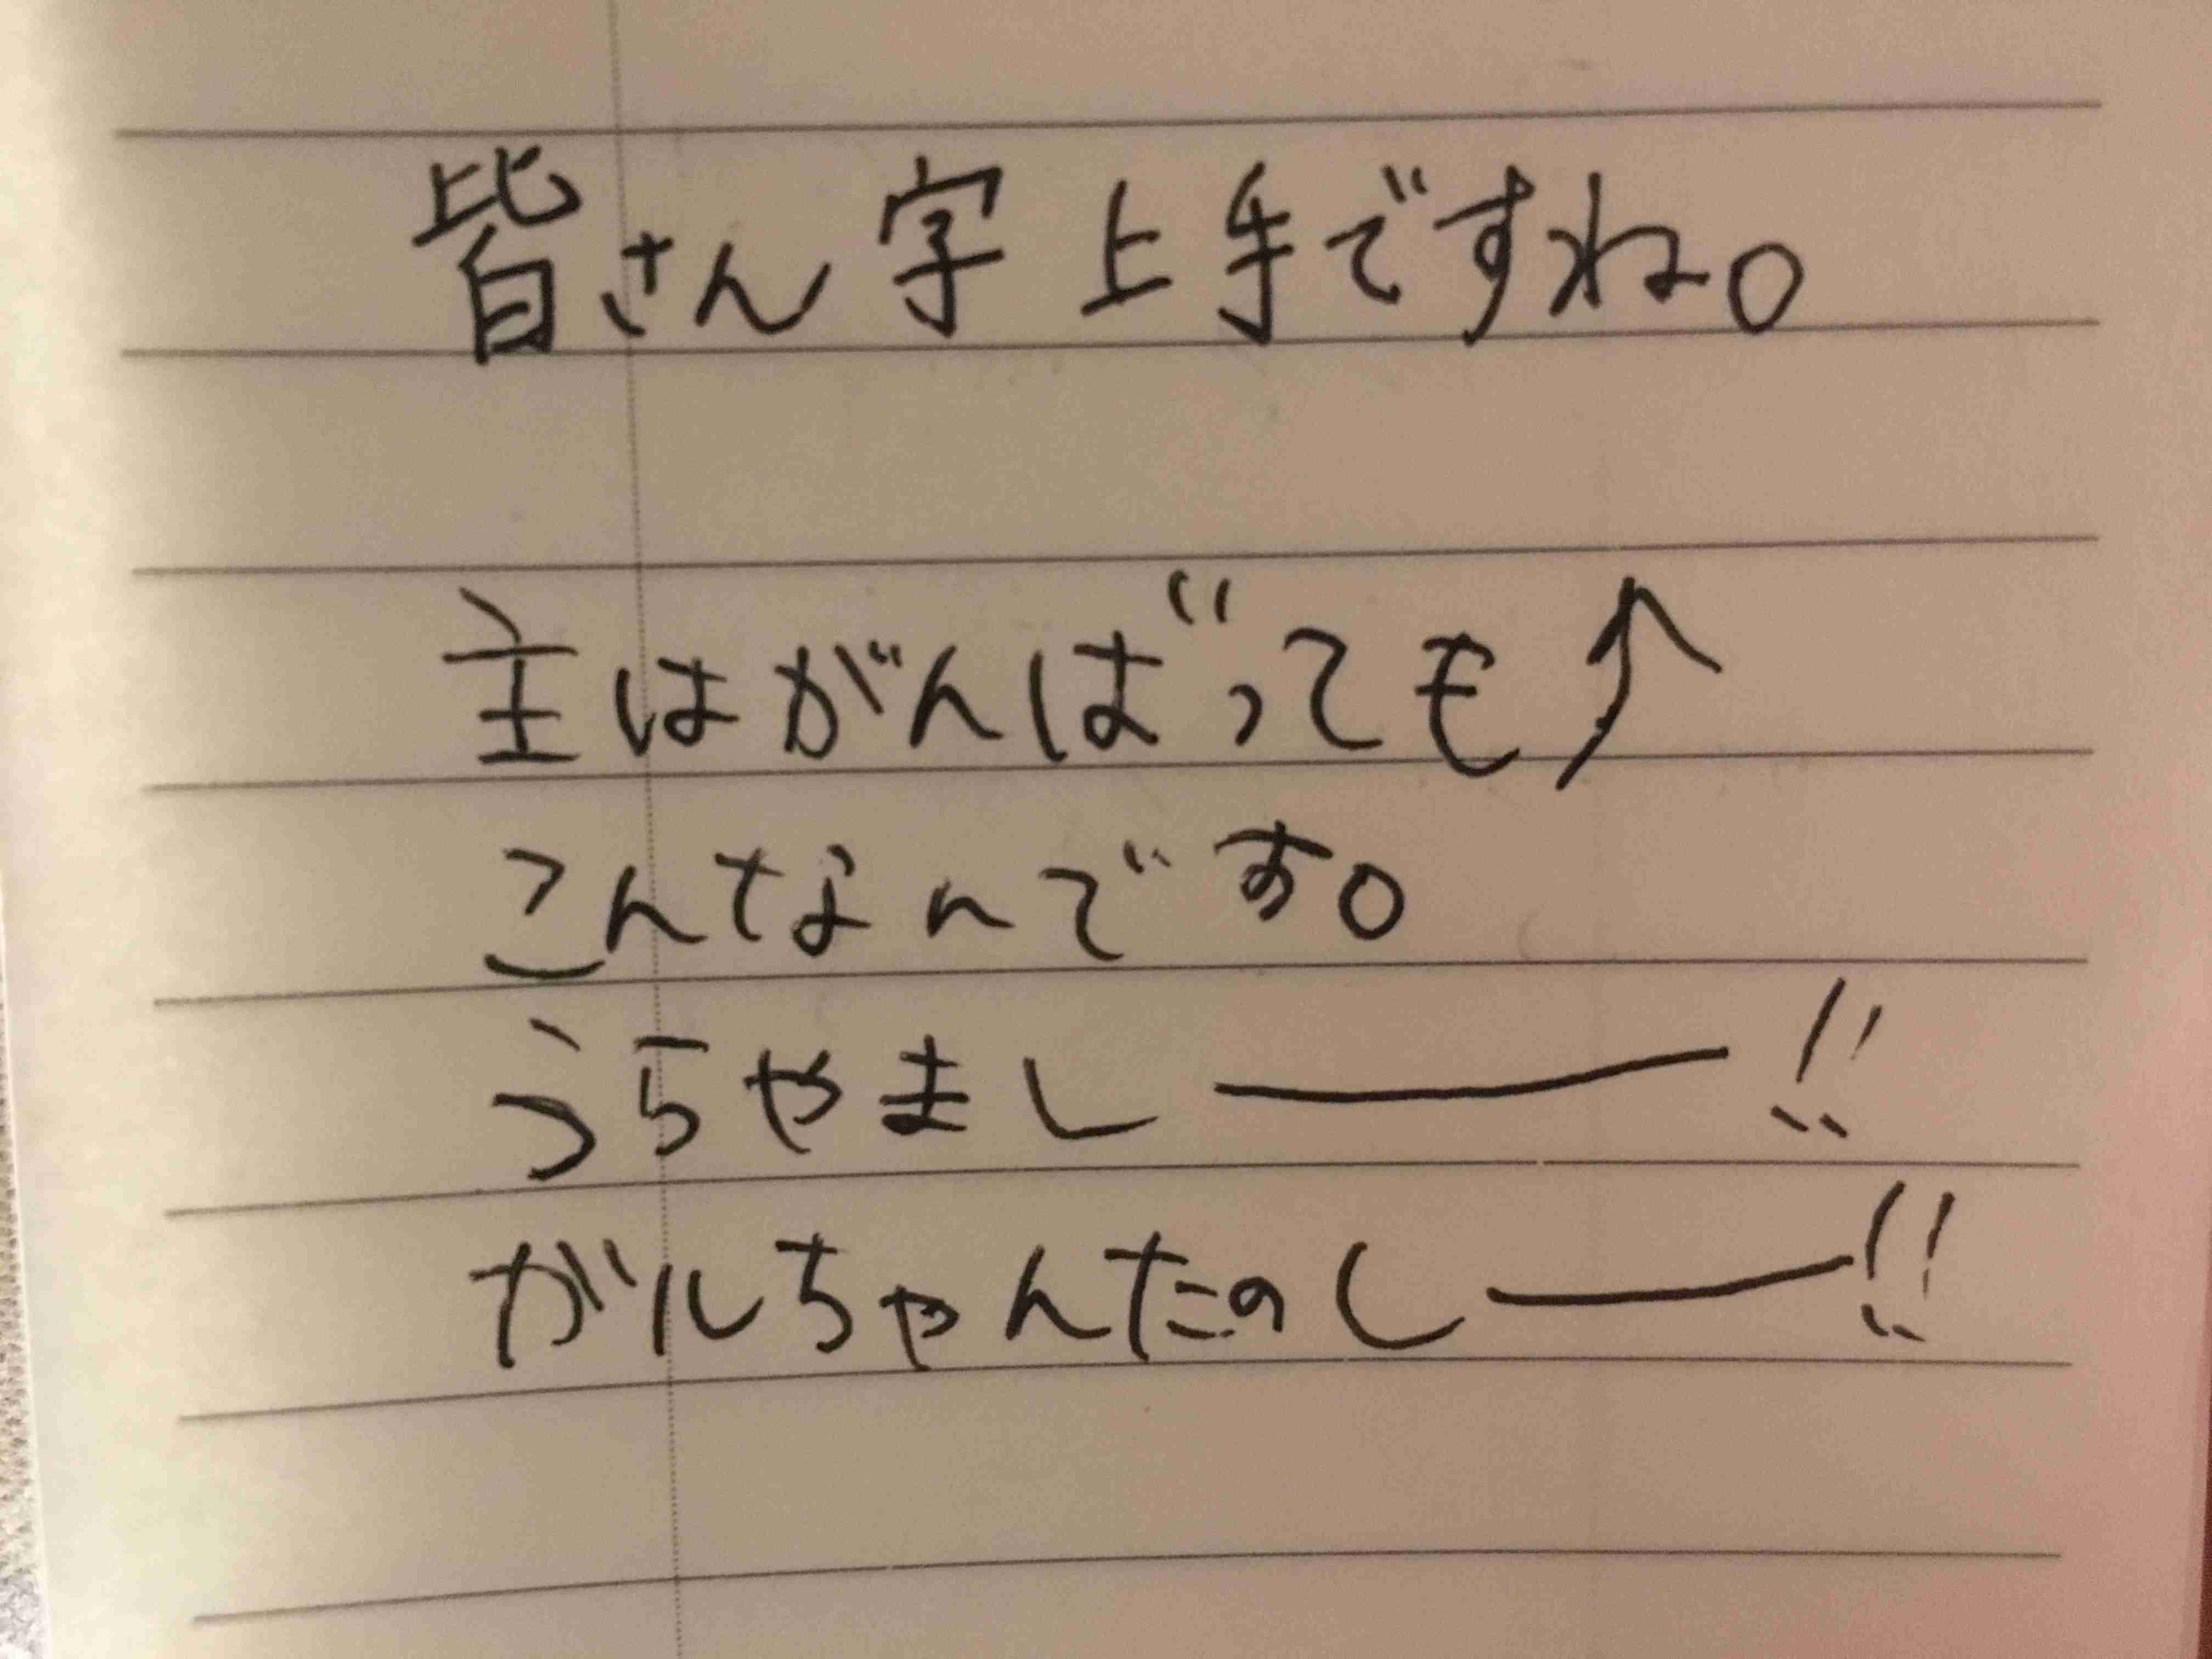 皆さん字上手ですね。
主はがんばっても↑
こんなんです。
うらやましー!!
ガルちゃんたのしー!!